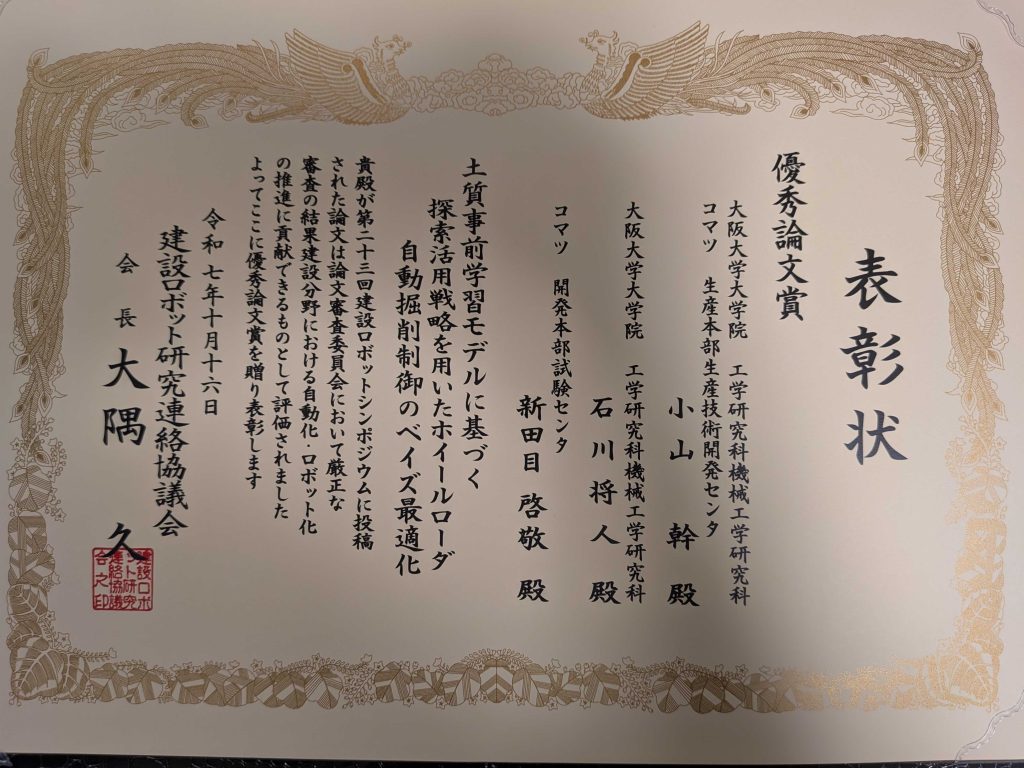 表彰状
優秀論文賞
大阪大学大学院　工学研究科機械工学研究科
コマツ　生産本部生産技術開発センタ
小山　幹　殿
大阪大学大学院　工学研究科機械工学研究科
石川将人　殿
コマツ　開発本部試験センタ
新田目　啓敬　殿
土質事前学習モデルに基づく
探索活用戦略を用いたホイールローダ
自動掘削制御のベイズ最適化
貴殿が第二十三回建設ロボットシンポジウムに投稿
された論文は論文審査委員会において厳正な
審査の結果建設分野における自動化・ロボット化
の推進に貢献できるものとして評価されました
よってここに優秀論文賞を贈り表彰します
令和七年十月十六日
建設ロボット研究連絡協議会
会長　大隅　久
建設ロボ
ット研究
連絡協議
会之印